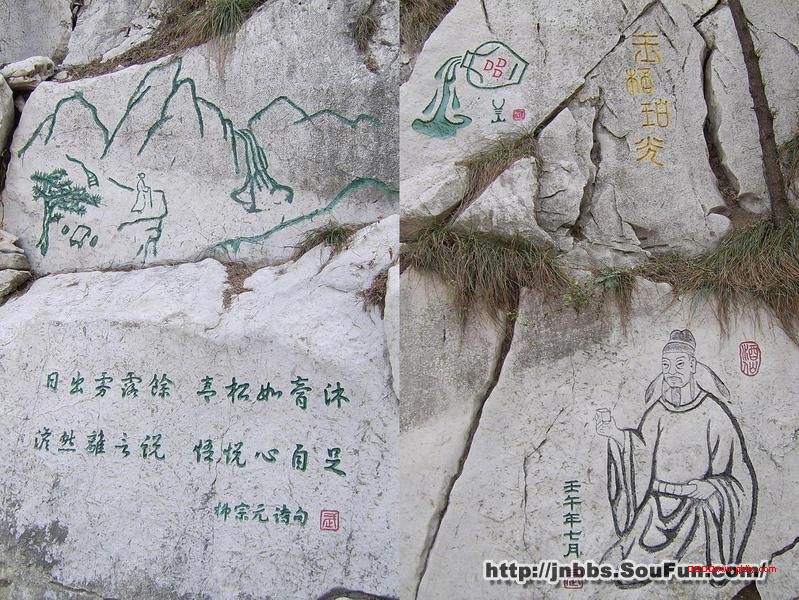 日出雾露餘 青松如膏沐
澹然離言说 悟悦心自足
柳宗元诗句
武
玉椀珀光
酒仙
壬午年七月
http://jnbbs.SouFun.com/